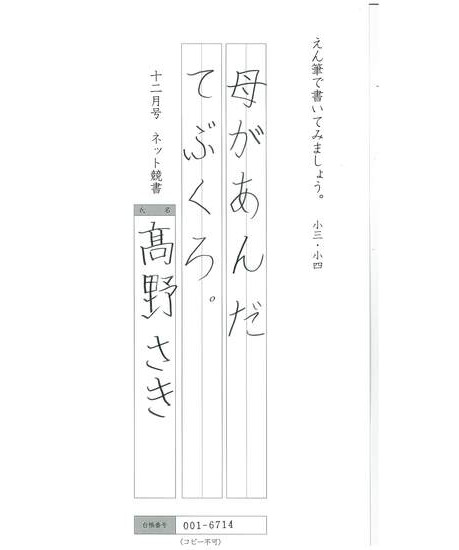 えん筆で書いてみましょう。 小三・小四
母があんだ
てぶくろ。
十二月号 ネット競書
氏名
髙野さき
台帳番号 001-6714
(コピー不可)